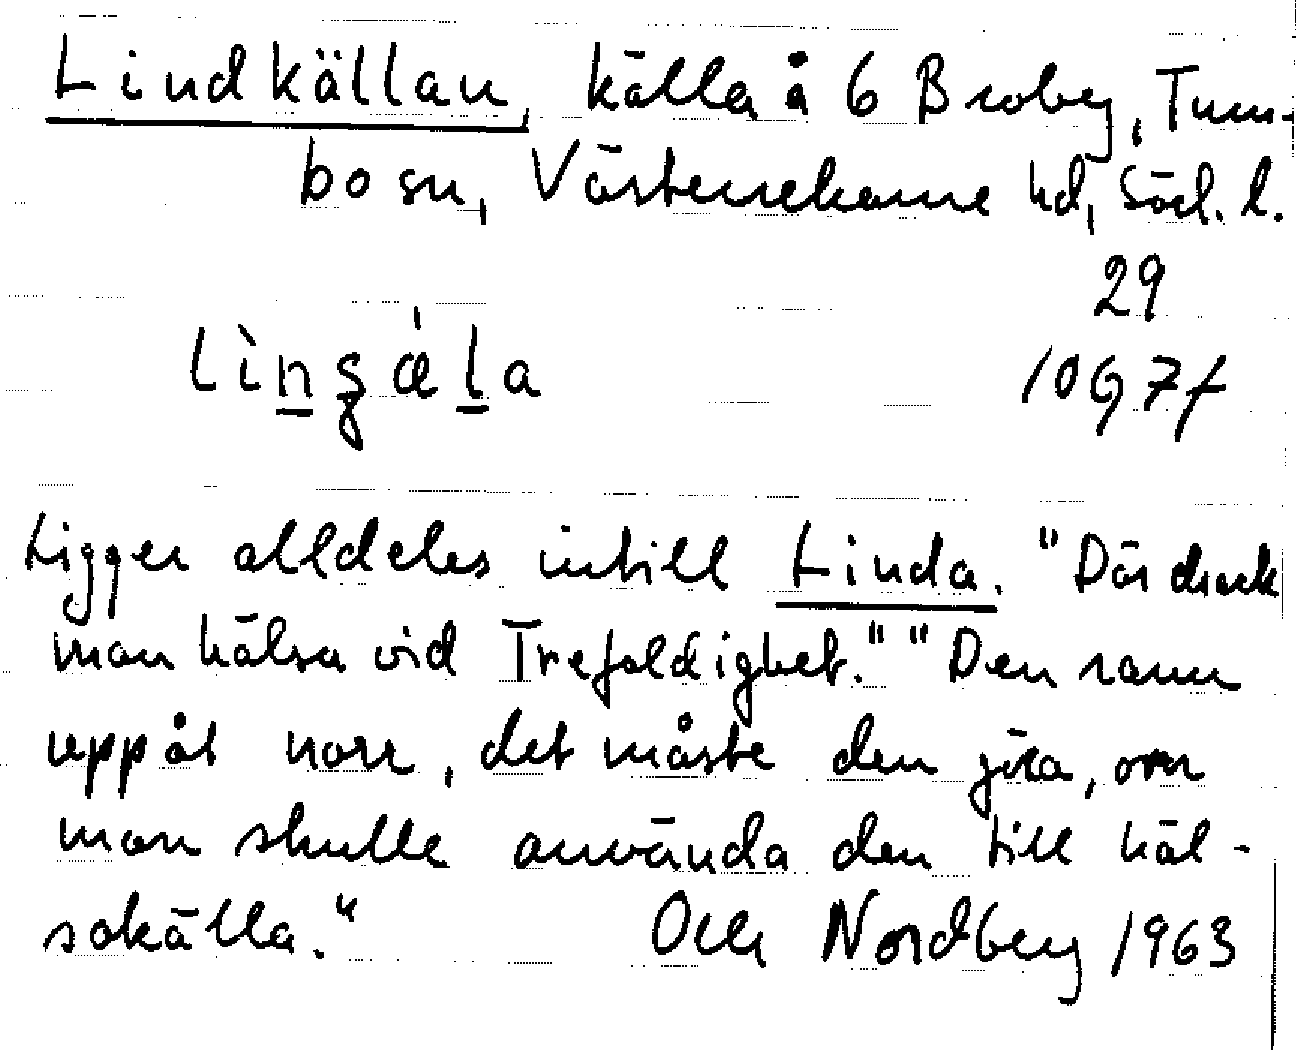 Lindkällan, källa å 6 Broby, Tum-
bo sn, Västerrekarne hd, Söd. l.
29
lìn̲gǽl̲a
10G7f
Ligger alldeles intill Linda. "Där drack
man hälsa vid Trefaldighet." "Den rann
uppåt norr, det måste den göra, om
man skulle använda den till häl-
sokälla."
Olle Nordberg 1963